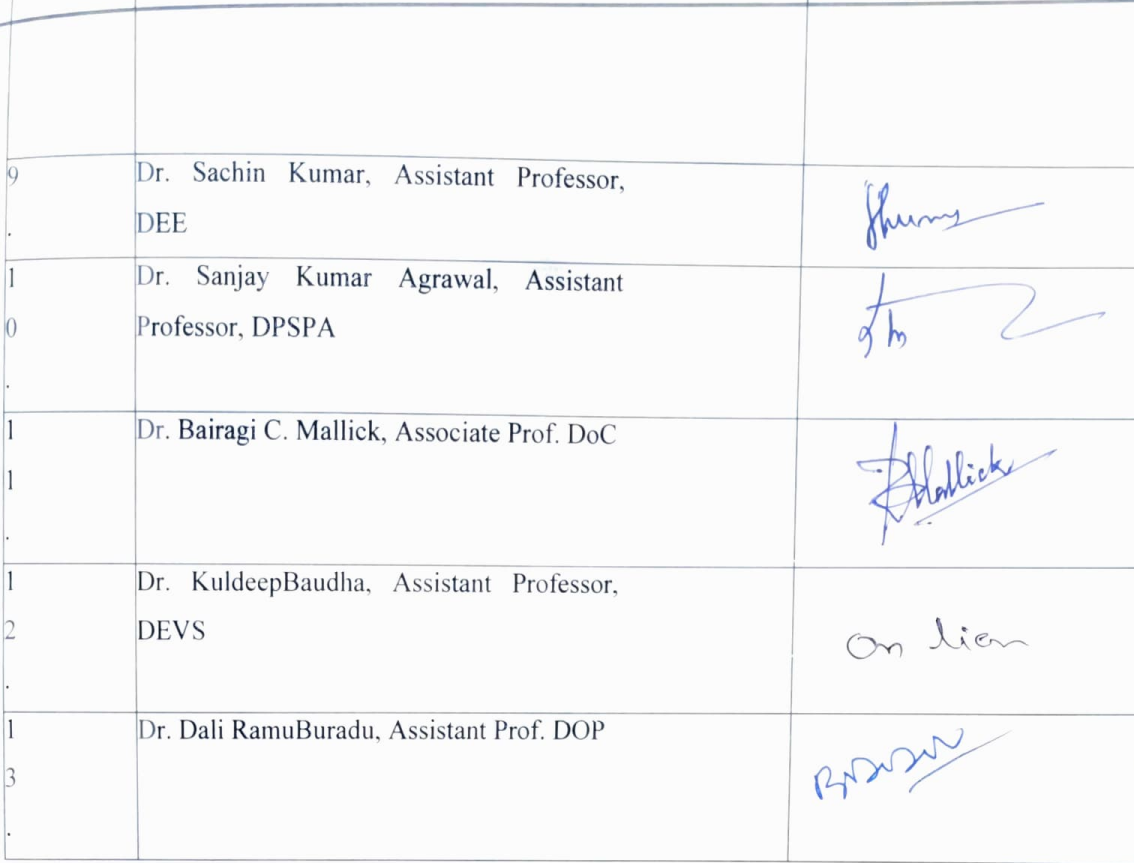 9
.
Dr. Sachin Kumar, Assistant Professor,
DEE
1
0
.
Dr. Sanjay Kumar Agrawal, Assistant
Professor, DPSPA
1
1
.
Dr. Bairagi C. Mallick, Associate Prof. DoC
BCMallick
1
2
.
Dr. KuldeepBaudha, Assistant Professor,
DEVS
On lien
1
3
.
Dr. Dali RamuBuradu, Assistant Prof. DOP